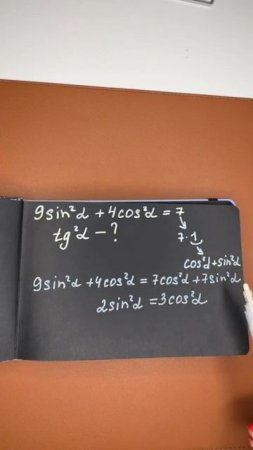 9sin²α + 4cos²α = 7
tg²α - ?
7·1
cos²α+sin²α
9sin²α +4cos²α = 7cos²α +7sin²α
2sin²α = 3cos²α